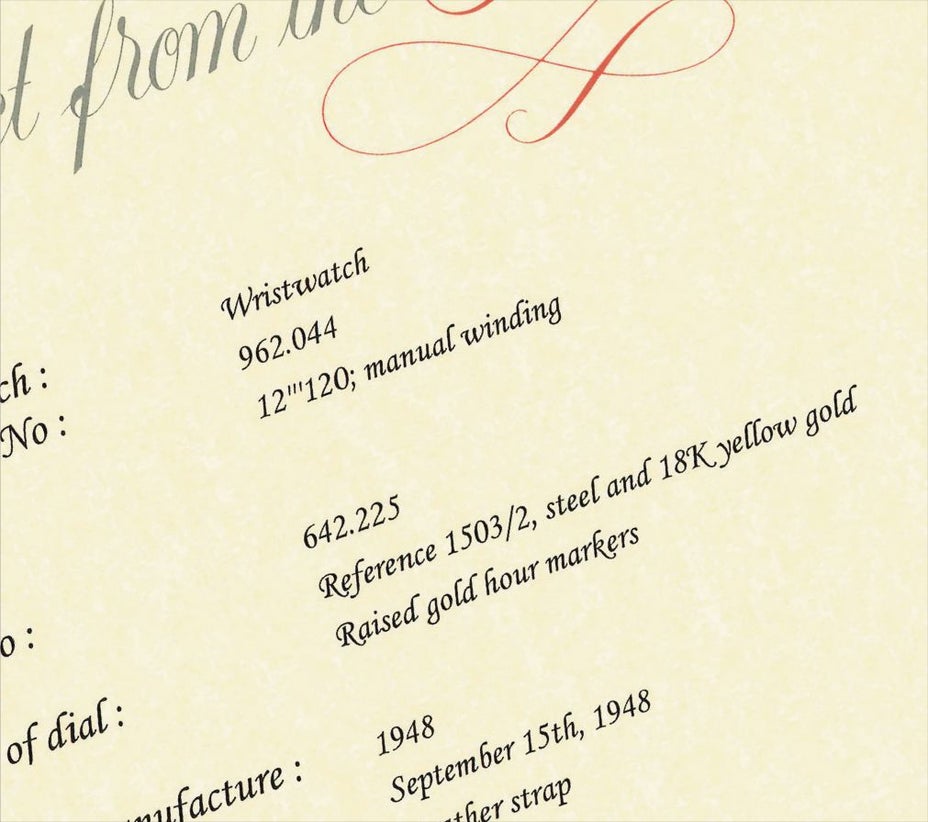 from the
Wristwatch
962.044
12'''120; manual winding
No :
642.225
Reference 1503/2, steel and 18K yellow gold
Raised gold hour markers
of dial :
1948
September 15th, 1948
strap